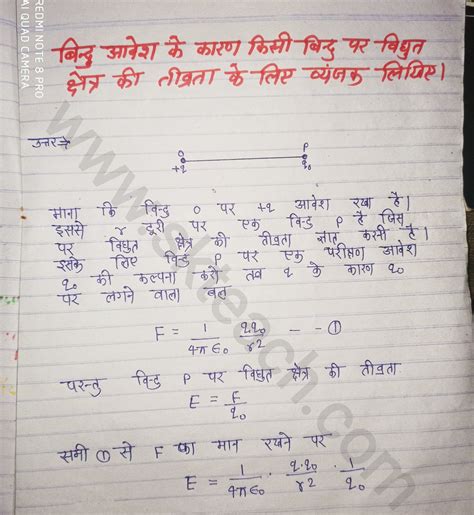 REDMI NOTE 8 PRO
AI QUAD CAMERA
बिन्दु आवेश के कारण किसी बिन्दु पर विद्युत
क्षेत्र की तीव्रता के लिए व्यंजक लिखिए।
उत्तर→
O P
+q q₀
माना कि बिन्दु O पर +q आवेश रखा है।
इससे r दूरी पर एक बिन्दु P है जिस
पर विद्युत क्षेत्र की तीव्रता ज्ञात करनी है।
इसके लिए बिन्दु P पर एक परीक्षण आवेश
q₀ की कल्पना करो तब q के कारण q₀
पर लगने वाला बल
F = 1/4πε₀ q.q₀/r² - - ①
परन्तु बिन्दु P पर विद्युत क्षेत्र की तीव्रता
E = F/q₀
समी ① से F का मान रखने पर
E = 1/4πε₀ . q.q₀/r² . 1/q₀
www.skteach.com